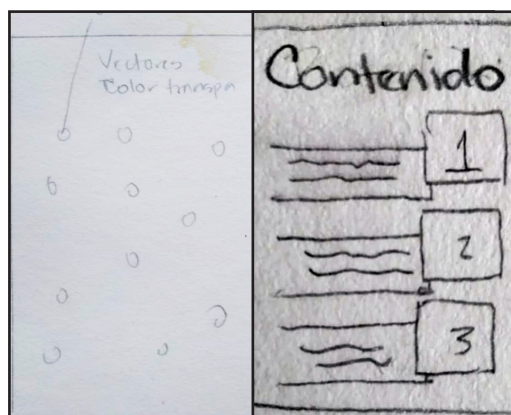 Vectores
Color transpa
Contenido
1
2
3